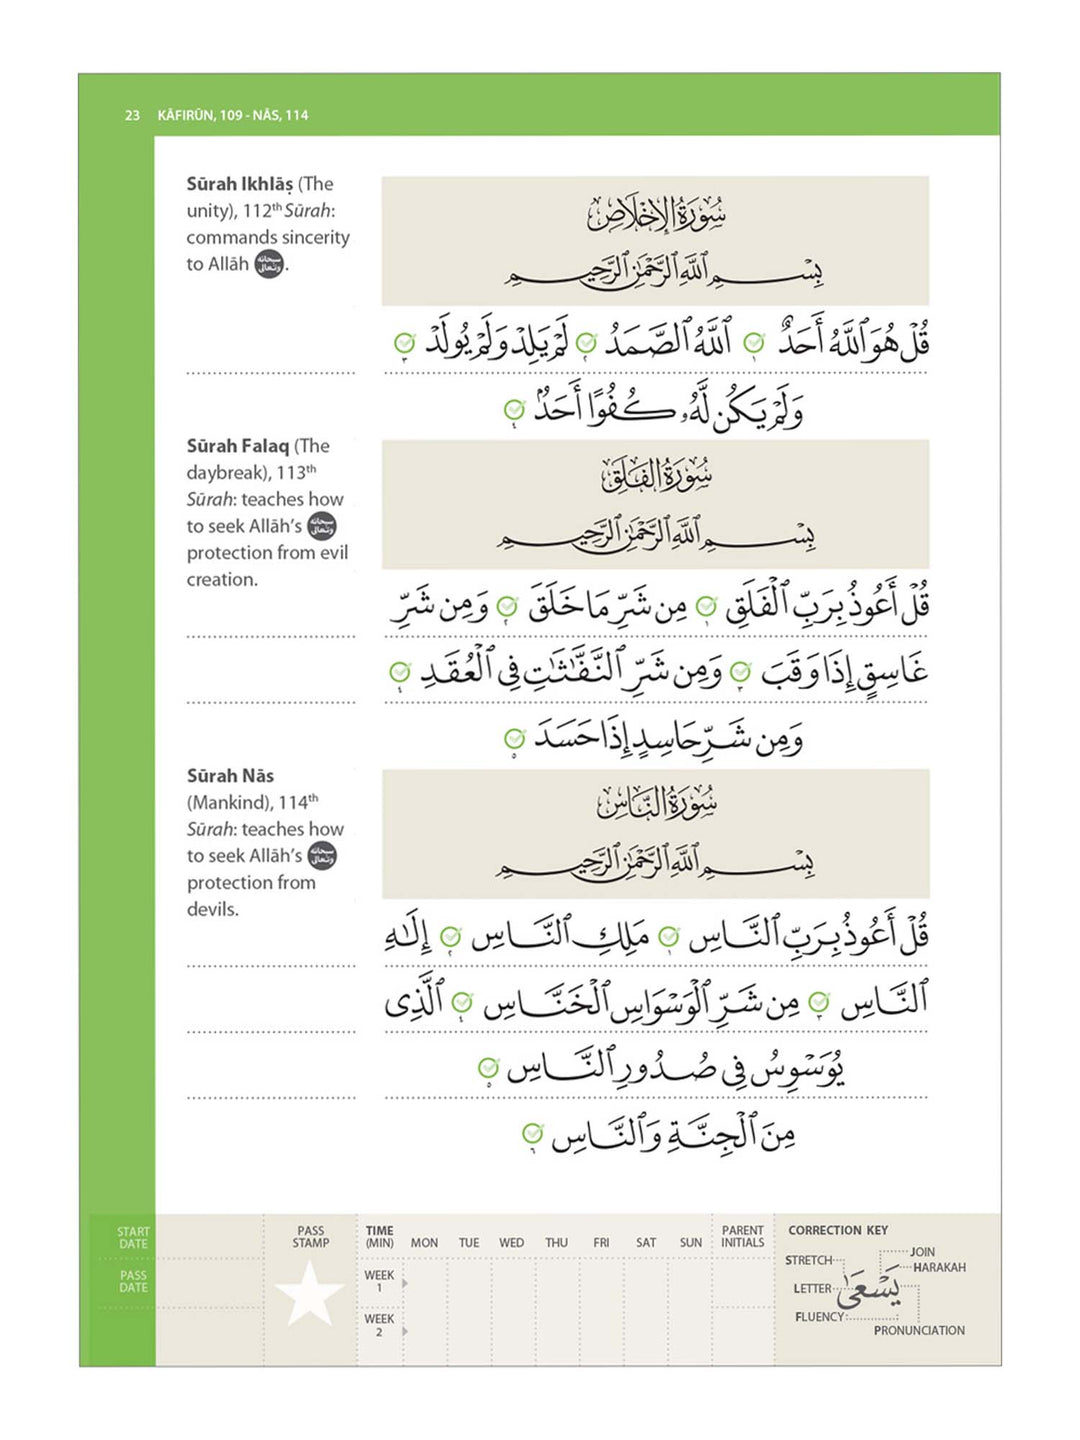 23 KĀFIRŪN, 109 - NĀS, 114
Sūrah Ikhlāṣ (The
unity), 112th Sūrah:
commands sincerity
to Allāh سبحانه وتعالى.
سُورَةُ الإِخْلَاصِ
بِسْمِ ٱللَّهِ ٱلرَّحْمَٰنِ ٱلرَّحِيمِ
قُلْ هُوَ ٱللَّهُ أَحَدٌ ١ ٱللَّهُ ٱلصَّمَدُ ٢ لَمْ يَلِدْ وَلَمْ يُولَدْ ٣
وَلَمْ يَكُن لَّهُۥ كُفُوًا أَحَدٌۢ ٤
Sūrah Falaq (The
daybreak), 113th
Sūrah: teaches how
to seek Allāh’s سبحانه وتعالى
protection from evil
creation.
سُورَةُ الفَلَقِ
بِسْمِ ٱللَّهِ ٱلرَّحْمَٰنِ ٱلرَّحِيمِ
قُلْ أَعُوذُ بِرَبِّ ٱلْفَلَقِ ١ مِن شَرِّ مَا خَلَقَ ٢ وَمِن شَرِّ
غَاسِقٍ إِذَا وَقَبَ ٣ وَمِن شَرِّ ٱلنَّفَّٰثَٰتِ فِى ٱلْعُقَدِ ٤
وَمِن شَرِّ حَاسِدٍ إِذَا حَسَدَ ٥
Sūrah Nās
(Mankind), 114th
Sūrah: teaches how
to seek Allāh’s سبحانه وتعالى
protection from
devils.
سُورَةُ النَّاسِ
بِسْمِ ٱللَّهِ ٱلرَّحْمَٰنِ ٱلرَّحِيمِ
قُلْ أَعُوذُ بِرَبِّ ٱلنَّاسِ ١ مَلِكِ ٱلنَّاسِ ٢ إِلَٰهِ
ٱلنَّاسِ ٣ مِن شَرِّ ٱلْوَسْوَاسِ ٱلْخَنَّاسِ ٤ ٱلَّذِى
يُوَسْوِسُ فِى صُدُورِ ٱلنَّاسِ ٥
مِنَ ٱلْجِنَّةِ وَٱلنَّاسِ ٦
START
DATE
PASS
DATE
PASS
STAMP
TIME
(MIN) MON TUE WED THU FRI SAT SUN
WEEK
1
WEEK
2
PARENT
INITIALS
CORRECTION KEY
STRETCH
JOIN
HARAKAH
LETTER
يَسْعَىٰ
FLUENCY
PRONUNCIATION